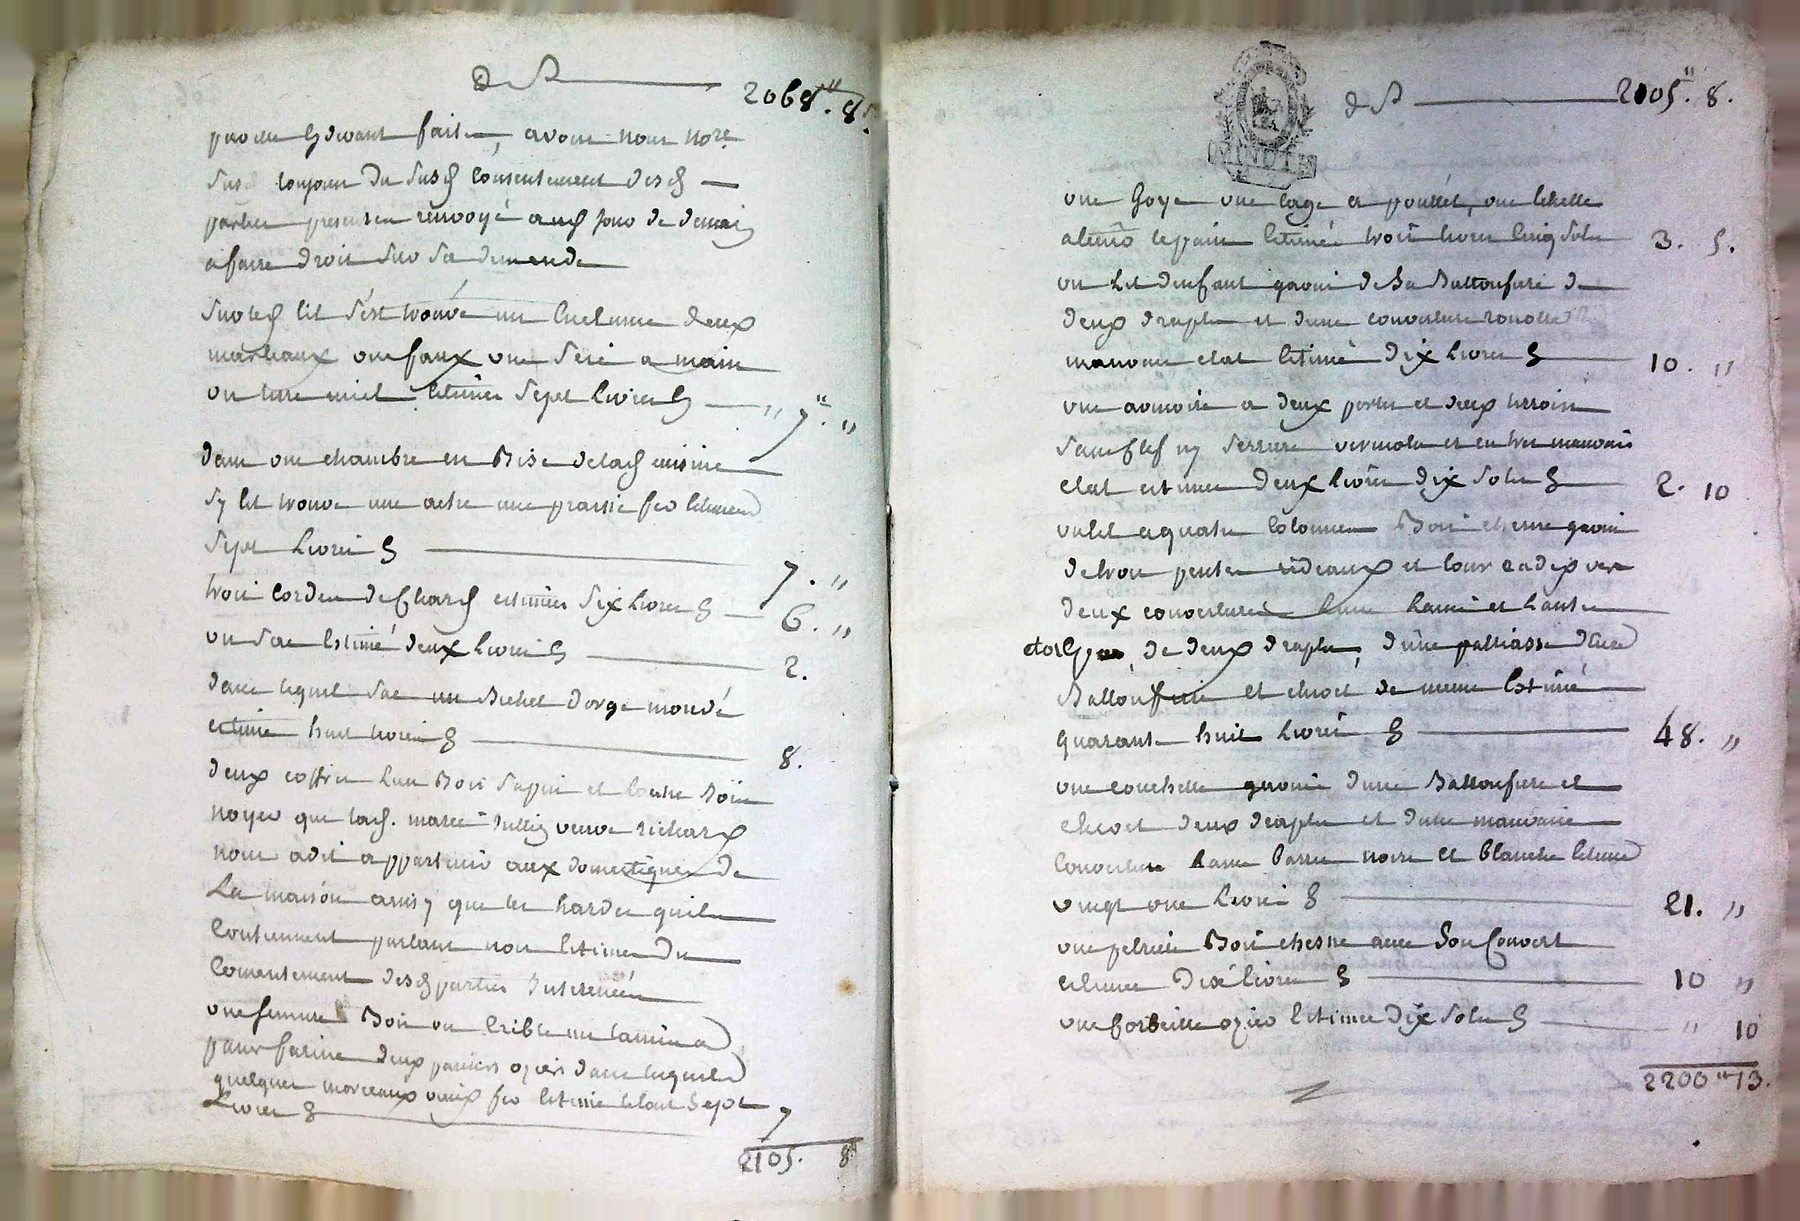 d.S 2068" 8s
par elle cydevant faite, avons nous nore
susd toujours du susd consentement desd
parties presentes renvoyé aud jour de demain
a faire droit sur sa demande
surled lit s'est trouvé un enclume deux
marteaux une faux une serie a main
un estimés sept livres 7" "
dans une chambre en Bise delad cuisine
sy est trouvé une autre une fer estimée
sept livres 7. "
trois cordes de Chard estimées six livres 6. "
un sac estimé deux livres 2.
dans lequel sac un Bichet d'orge mondé
estimé huit livres 8.
deux coffres l'un Bois sapin et l'autre Bois
noyer que lad. marie Jullin veuve richard
nous a dit appartenir aux domestiques de
La maison ainsy que les hardes quils
contiennent partant non estimés du
consentement desd parties interessées
une Bois un crible un tamis
pour farine deux paniers oziers dans lequels
quelques morceaux vieux fer estimé le tout sept
Livres 7
2105. 8s
d.S 2105." 8.
MINUTE
une Goye une cage a poullet, une echelle
a le pain estimé trois livres cinq sols 3. 5.
un Lit d'enfant garni de sa Battoufiere de
deux draples et d'une couverture
mauvais etat estimé dix livres 10. "
une armoire a deux portes et deux tiroirs
sans clef ny serrure vermolu et en tres mauvais
etat estimée deux livres dix sols 2. 10
un lit a quatre colonnes Bois chesne garni
de trois pentes rideaux et tour cadix ver
deux couvertures l'une laine et l'autre
de deux draples, d'une palliasse d'une
Battoufiere et chevet de meme estimé
quarante huit livres 48. "
une couchette garnie d'une Battoufiere et
chevet deux draples et d'une mauvaise
couverture laine barrée noire et blanche estimé
vingt une livres 21. "
une petriere Bois chesne avec son couvert
estimée dix livres 10 "
une corbeille ozier estimée dix sols " 10
2200" 13.